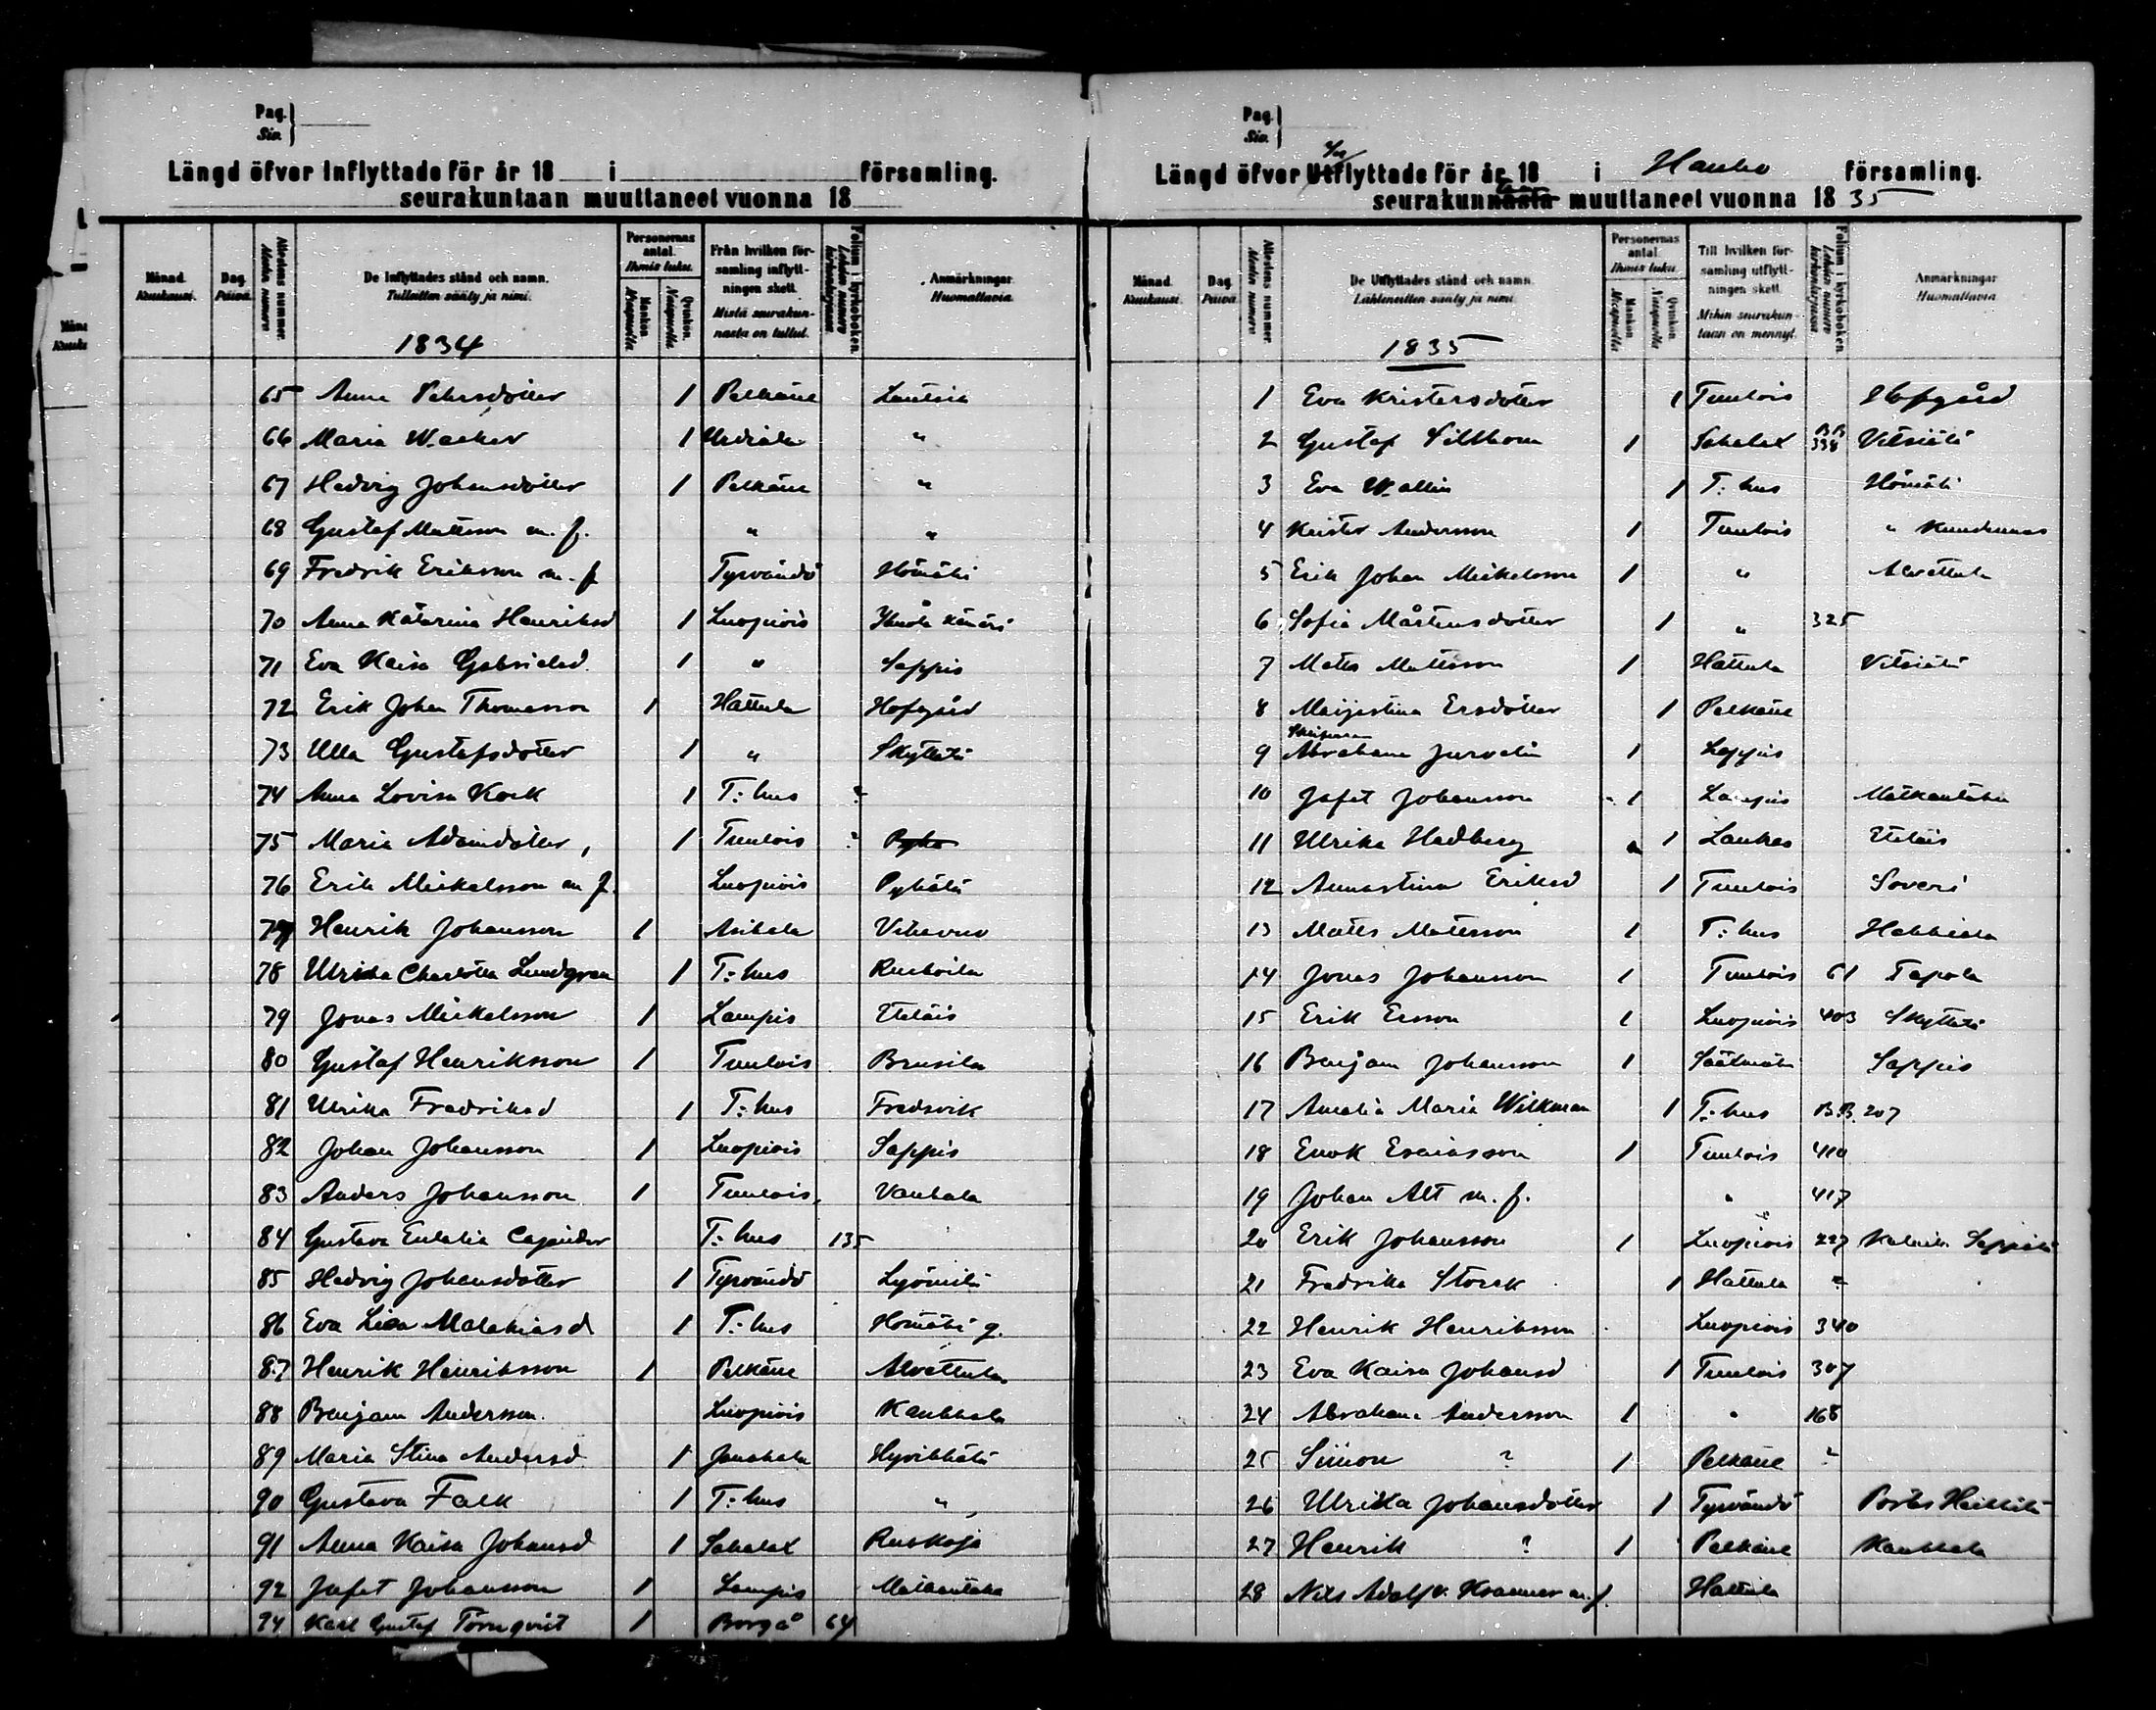 Pag.
Siv.
Längd öfver Inflyttade för år 18 i församling.
seurakuntaan muuttaneet vuonna 18
Månad. Kuukausi.
Dag. Päivä.
Attestens nummer.
De Inflyttades stånd och namn.
Tulleitten sääty ja nimi.
Personernas antal.
Ihmis luku.
Mankön. Miespuolta
Qvinkön. Naispuolta
Från hvilken för-
samling inflytt-
ningen skett.
Mistä seurakun-
nasta on tullut.
Folium i kyrkoboken.
Anmärkningar
Huomattavia
1834
65 Anna Petersdotter 1 Pelkäne Lautsia
66 Maria Wacker 1 Urdiala "
67 Hedvig Johansdotter 1 Pelkäne "
68 Gustaf Mattsson m. f. " "
69 Fredrik Eriksson m. f Tyrvändö Hömäki
70 Anna Katarina Henriksd 1 Luopiois
71 Eva Kaisa Gabrielsd. 1 " Sappis
72 Erik Johan Thomasson 1 Hattula Hofgård
73 Ulla Gustafsdotter 1 " Skyttälä
74 Anna Lovisa Kock 1 T:hus ?
75 Maria Adamdotter, 1 Tuulois ?
76 Erik Mickelsson m f. Luopiois Pyhälä
77 Henrik Johansson 1 Asikala Vihavuo
78 Ulrika Charlotta Lundgren 1 T:hus Ruskoila
79 Jonas Mickelsson 1 Lampis Eteläis
80 Gustaf Henriksson 1 Tuulois Brusila
81 Ulrika Fredriksd 1 T:hus Fredsvik
82 Johan Johansson 1 Luopiois Sappis
83 Anders Johansson 1 Tuulois Vanhala
84 Gustava Eulalia Cajander T:hus 135
85 Hedvig Johansdotter 1 Tyrvändö
86 Eva Lisa Malakiasd 1 T:hus Hömäki g.
87 Henrik Henriksson 1 Pelkäne Alvettula
88 Benjam Andersson. Luopiois Kaukkala
89 Maria Stina Andersd 1 Janakala Hyvikkälä
90 Gustava Falk 1 T:hus "
91 Anna Kaisa Johansd 1 Sahalax Ruskoja
92 Jafet Johansson 1 Lampis Mätkantaka
94 Karl Gustaf Törnqvist 1 Borgå 64
Pag.
Siv.
Längd öfver Utflyttade för år 18 i Hauho församling.
seurakunnasta muuttaneet vuonna 18 35
Månad. Kuukausi.
Dag. Päivä.
Attestens nummer.
De Utflyttades stånd och namn.
Lähteneitten sääty ja nimi.
Personernas antal.
Ihmis luku.
Mankön. Miespuolta
Qvinkön. Naispuolta
Till hvilken för-
samling utflytt-
ningen skett.
Mihin seurakun-
taan on mennyt.
Folium i kyrkoboken.
Anmärkningar
Huomattavia
1835
1 Eva Kristersdotter 1 Tuulois Hofgård
2 Gustaf Silthorn 1 Sahalax BB 338 Vitsiälä
3 Eva Wallin 1 T:hus Hömäki
4 Krister Andersson 1 Tuulois "
5 Erik Johan Mickelsson 1 " Alvettula
6 Sofia Mårtensdotter 1 " 325
7 Matts Mattsson 1 Hattula Vitsiälä
8 Maijastina Ersdotter 1 Pelkäne
9 Abraham Jurvelin 1 Loppis
10 Jafet Johansson 1 Lampis Mätkantaka
11 Ulrika Hedberg 1 Laukas Eteläis
12 Annastina Eriksd 1 Tuulois Soveri
13 Matts Mattsson 1 T:hus Hahkiala
14 Jonas Johansson 1 Tuulois 61 Tapola
15 Erik Ersson 1 Luopiois 403 Skyttälä
16 Benjam Johansson 1 Säätmäki Sappis
17 Amalia Maria Wikman 1 T:hus B.B. 207
18 Enok Esaiasson 1 Tuulois 410
19 Johan Alt m. f. " 417
20 Erik Johansson 1 Luopiois 227
21 Fredrika Storck 1 Hattula ?
22 Henrik Henriksson Luopiois 340
23 Eva Kaisa Johansd 1 Tuulois 307
24 Abraham Andersson 1 " 168
25 Simon ? 1 Pelkäne ?
26 Ulrika Johansdotter 1 Tyrvändö
27 Henrik ? 1 Pelkäne Kaukkala
28 Nils Adolf v. Kraemer m. f. Hattula